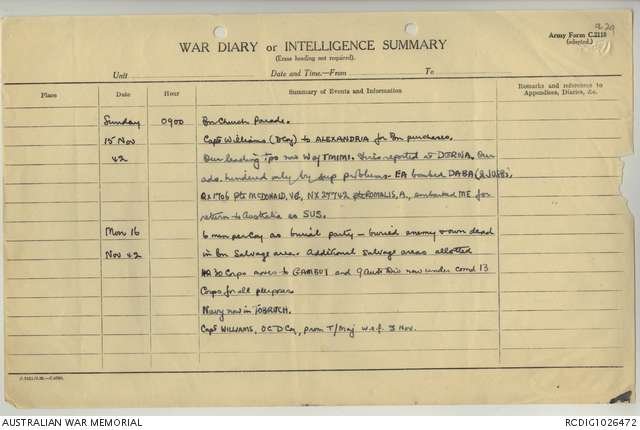 Army Form C.2118
(adapted.)
WAR DIARY or INTELLIGENCE SUMMARY
(Erase heading not required).
Unit Date and Time.—From To
Place Date Hour Summary of Events and Information Remarks and reference to
Appendices, Diaries, &c.
Sunday 0900 Bn Church Parade.
15 Nov Capt Williams (D Coy) to ALEXANDRIA for Bn purchases.
42 Our leading tps now W of TMIMI. reported at DERNA. Our
adv. hindered only by sup problems. EA bombed DABA
QX1706 Pte McDONALD, NX27742 ROMALIS, A., embarked ME for
return to Australia as SUS.
Mon 16 6 men per Coy as burial party - buried enemy & own dead
Nov 42 in Bn Salvage area. Additional Salvage areas allotted
HQ 30 Corps moves to GAMBUT and 9 Aust Div now under comd 13
Corps for all purposes
Navy now in TOBRUCH.
Capt WILLIAMS, OC D Coy, prom T/Maj w.e.f. 3 Nov.
AUSTRALIAN WAR MEMORIAL
RCDIG1026472